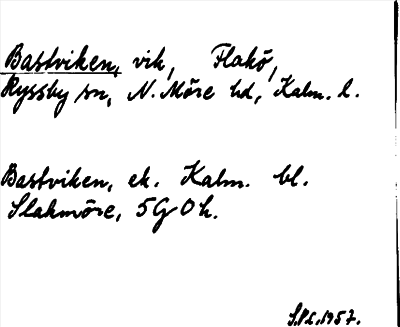 Bastviken, vik, Flakö,
Ryssby sn, N. Möre hd, Kalm. l.
Bastviken, ek. Kalm. bl.
Slakmöre, 5G0h.
1957.